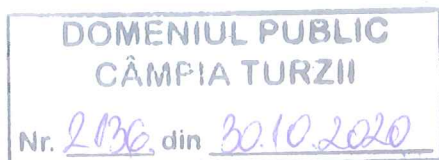 DOMENIUL PUBLIC
CÂMPIA TURZII
Nr. 2136 din 30.10.2020